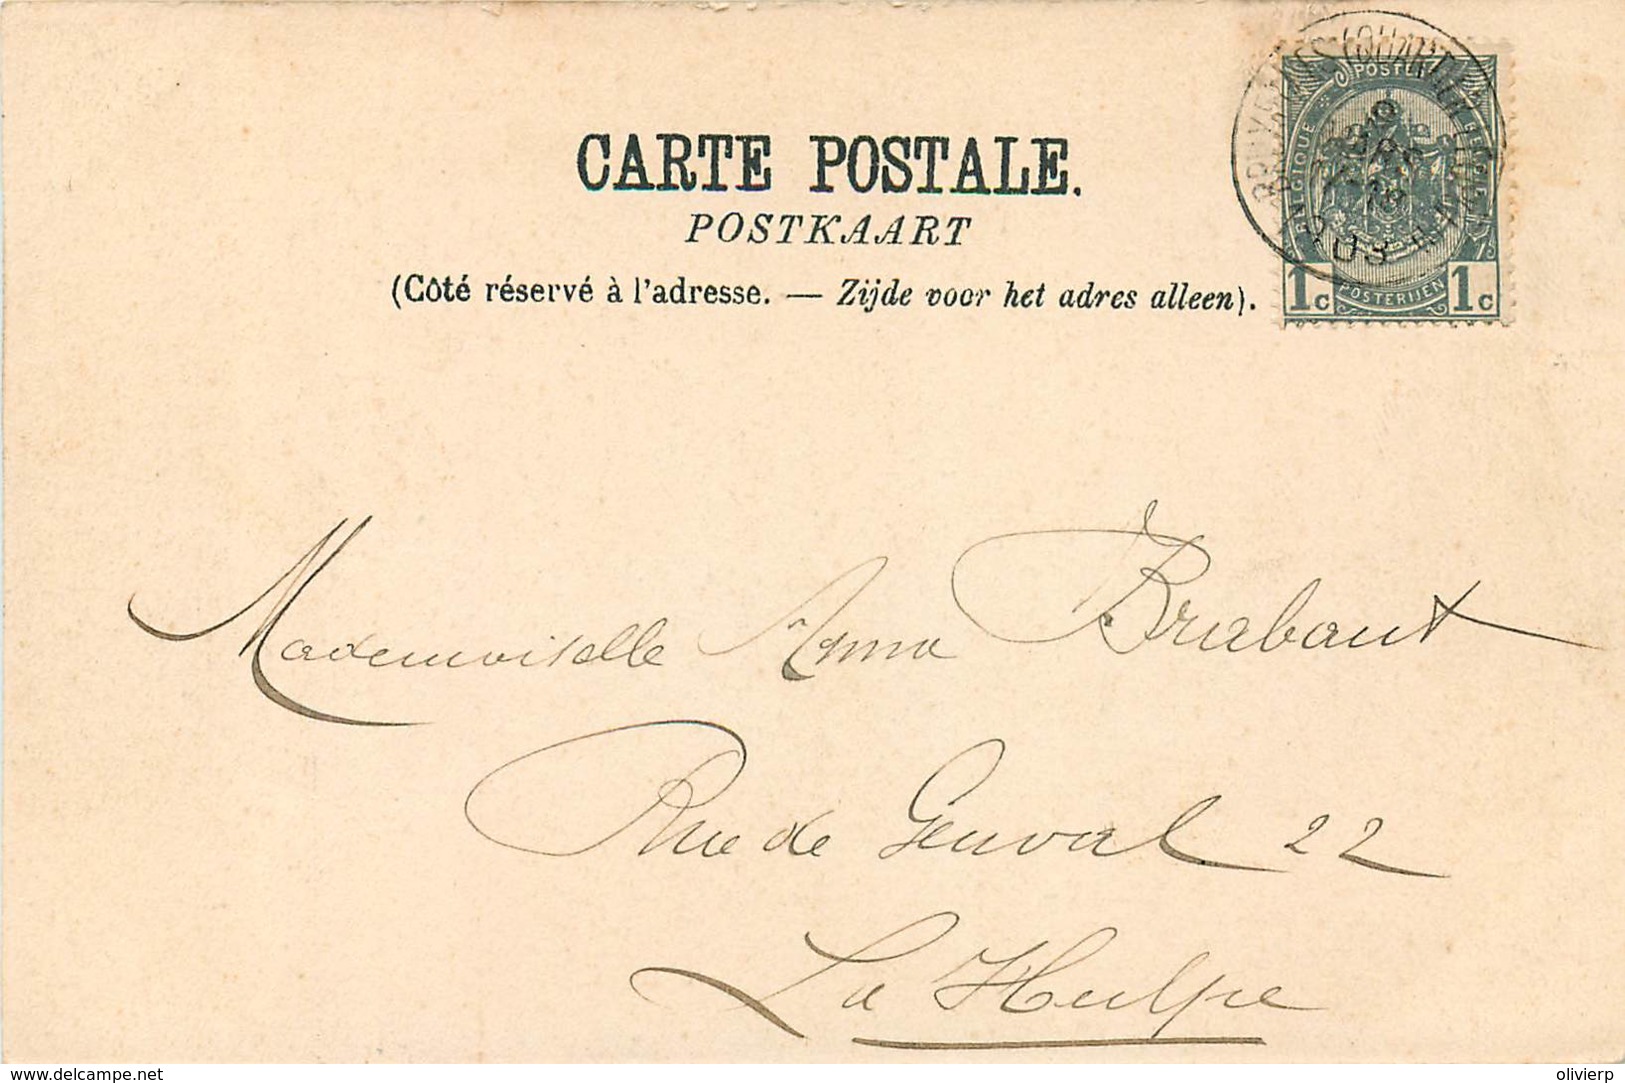 CARTE POSTALE.
POSTKAART
(Côté réservé à l'adresse. — Zijde voor het adres alleen).
POSTES
BELGIQUE
1c POSTERIJEN 1c
Mademoiselle Anna Brabant
Rue de Genval 22
La Hulpe
www.delcampe.net
olivierp